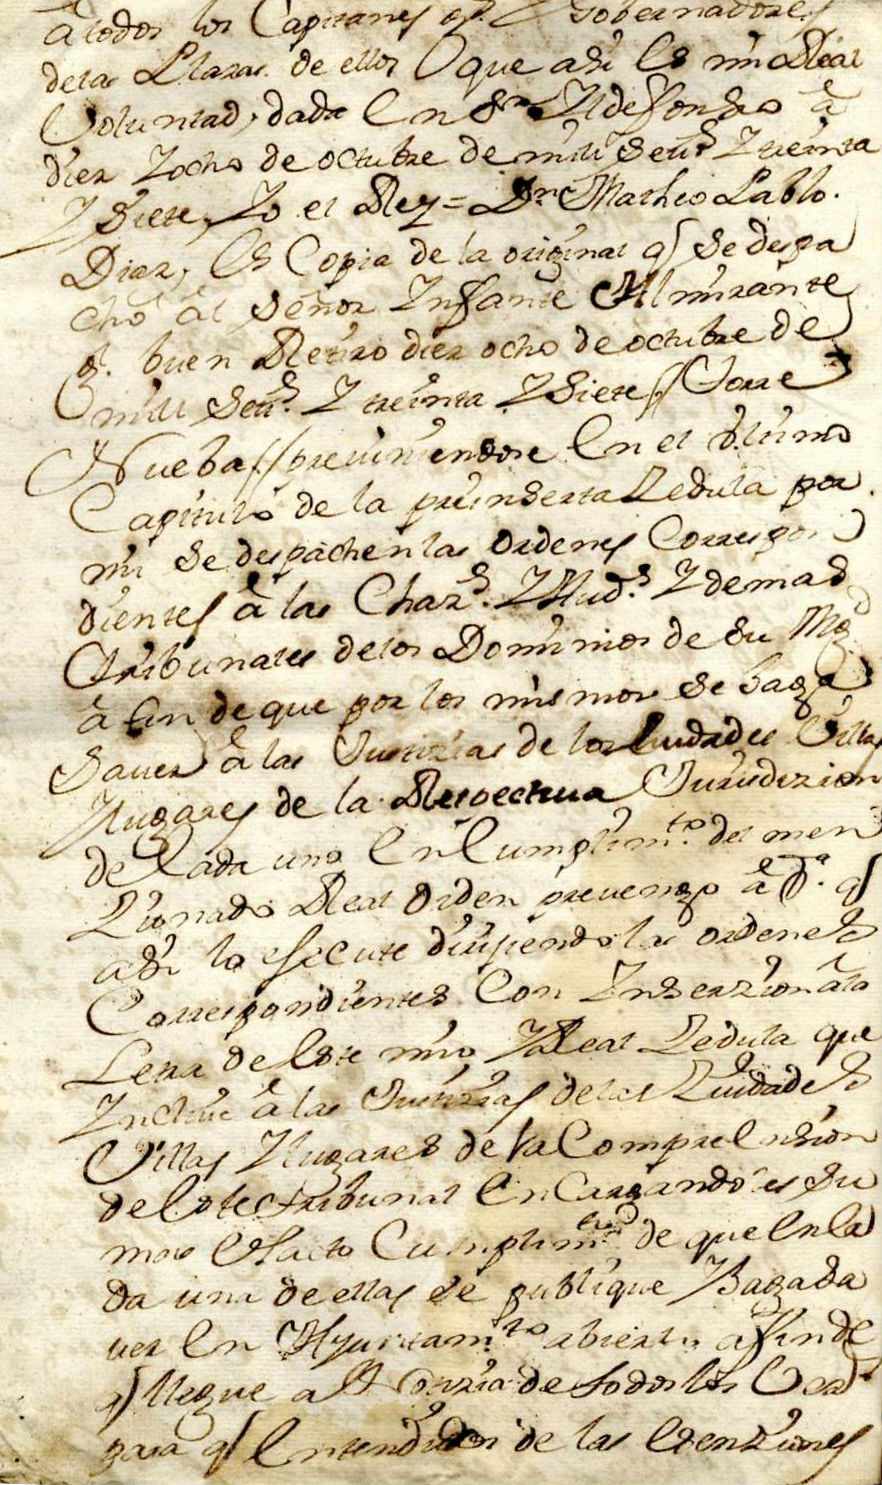 à todos los Capitanes Gobernadores
de las Plazas de ellos que asi Es mi Real
Voluntad, dada En Sn Ildefonso à
diez Y ocho de octubre de mill Setts Y treinta
Y Siete, Yo el Rey = Dn Matheo Pablo.
Diaz, Es Copia de la original q Se despa
cho al Señor Infante Almirante
buen Retiro diez ocho de octubre de
mill Sets Y treinta Y Siete // Torre
Nueba // previniendose En el vltimo
Capitulo de la preinserta Zedula por
mi Se despachen las ordenes Correspon
dientes à las Chazs Y Auds Y demas
Tribunales de los Dominios de Su Mgd
à fin de que por los mismos Se haga
Saver à las Justizias de los Ciudades Villas
Y lugares de la Respectiua Jurisdizion
de Cada uno En Cumplimto del men
Zionado Real orden prevengo à q
asi lo execute dirijiendo las ordenes
Correspondientes Con Inserzion à la
Letra de Este mio, Y Real Zedula que
Incluie à las Justizias de las Ziudades
Villas Y lugares de la CompreEnsion
de Este tribunal EnCargandoles Su
mas ExActo Cumplimto de que En Ca
da una de ellas Se publique Y haga Sa
ver En Ayuntamto abierto afin de
q llegue a Notizia de todos los
para q Entendidos de las Esenziones